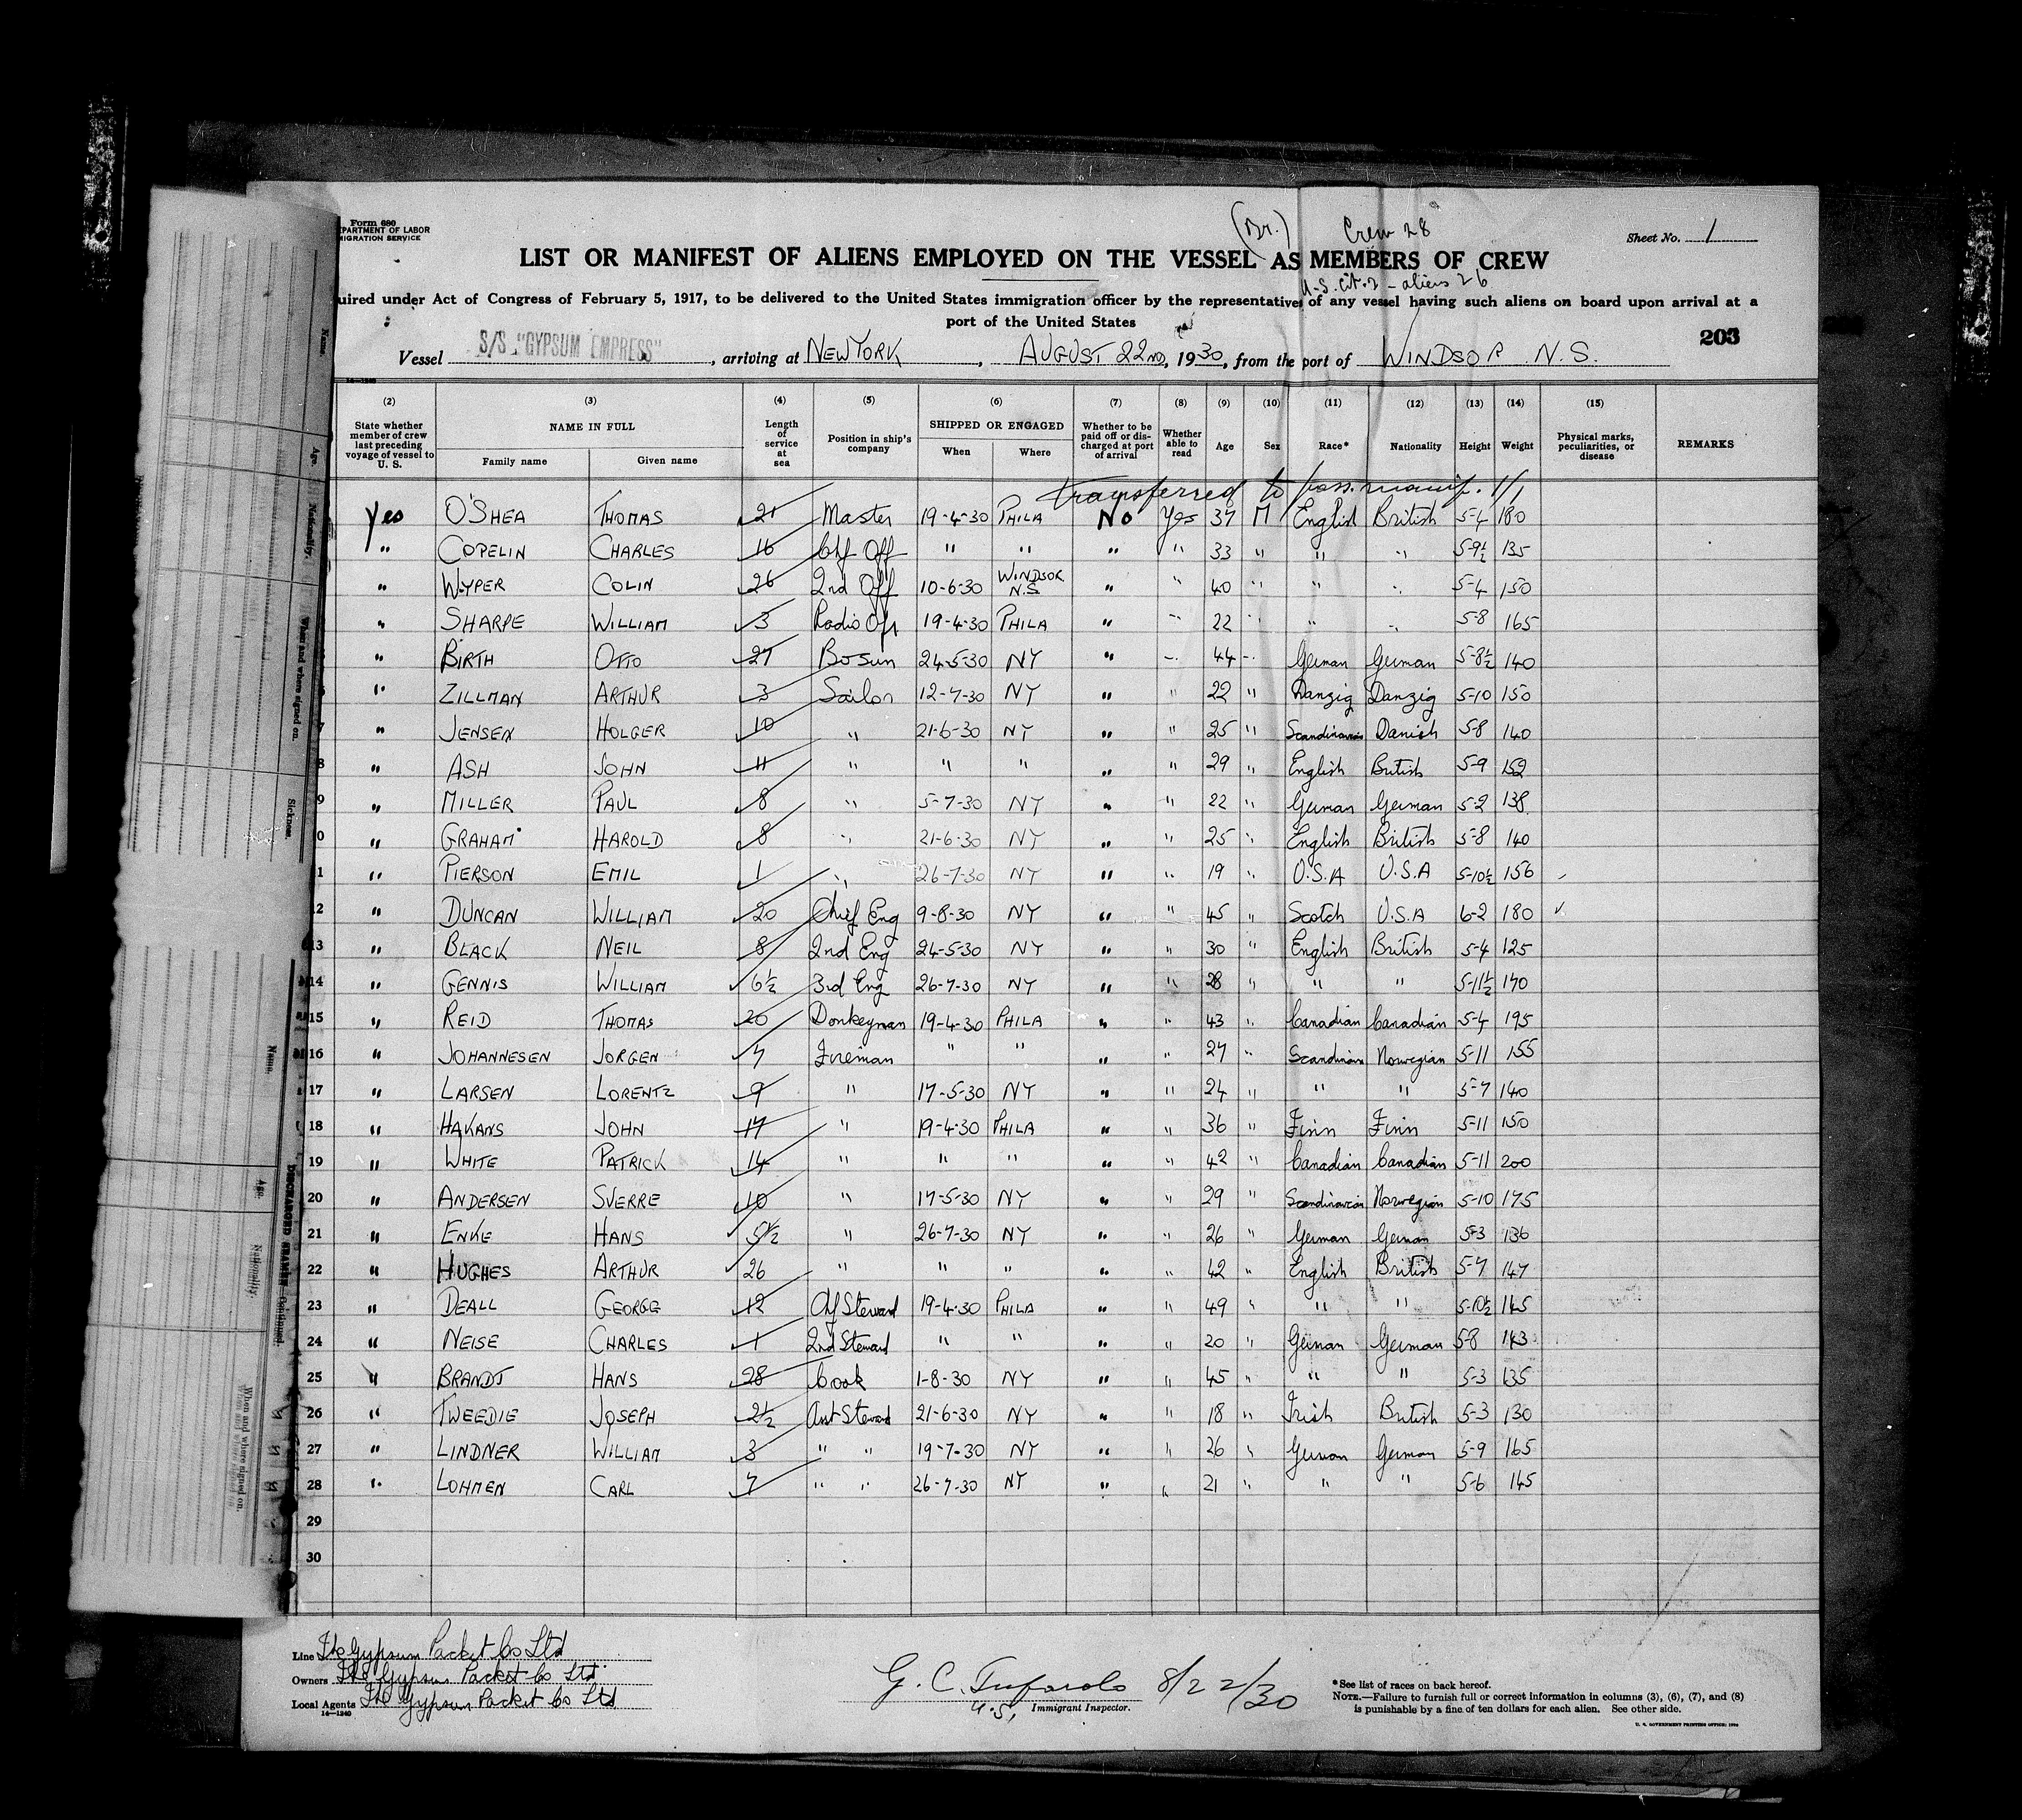 Form 680
DEPARTMENT OF LABOR
IMMIGRATION SERVICE
(Br.) Crew 28
Sheet No. 1
LIST OR MANIFEST OF ALIENS EMPLOYED ON THE VESSEL AS MEMBERS OF CREW
U.S. Cit. 2 - aliens 26
uired under Act of Congress of February 5, 1917, to be delivered to the United States immigration officer by the representatives of any vessel having such aliens on board upon arrival at a
port of the United States
203
Vessel S/S "GYPSUM EMPRESS", arriving at NEW YORK, AUGUST 22ND, 1930, from the port of WINDSOR N.S.
14—1240
(2) (3) (4) (5) (6) (7) (8) (9) (10) (11) (12) (13) (14) (15)
State whether member of crew last preceding voyage of vessel to U. S. NAME IN FULL Family name Given name Length of service at sea Position in ship's company SHIPPED OR ENGAGED When Where Whether to be paid off or discharged at port of arrival Whether able to read Age Sex Race* Nationality Height Weight Physical marks, peculiarities, or disease REMARKS
transferred to pass. manif. 1/1
Yes O'SHEA THOMAS 21 Master 19-4-30 PHILA No Yes 37 M English British 5-4 180
" COPELIN CHARLES 16 Chf Off " " " " 33 " " " 5-9½ 135
" WYPER COLIN 26 2nd Off 10-6-30 WINDSOR N.S " " 40 " " " 5-4 150
" SHARPE WILLIAM 3 Radio Ofr 19-4-30 PHILA " " 22 " " " 5-8 165
" BIRTH OTTO 27 Bosun 24-5-30 NY " " 44 " German German 5-8½ 140
" ZILLMAN ARTHUR 3 Sailor 12-7-30 NY " " 22 " Danzig Danzig 5-10 150
7 " JENSEN HOLGER 10 " 21-6-30 NY " " 25 " Scandinavian Danish 5-8 140
8 " ASH JOHN 11 " " " " " 29 " English British 5-9 152
9 " MILLER PAUL 8 " 5-7-30 NY " " 22 " German German 5-2 138
0 " GRAHAM HAROLD 8 " 21-6-30 NY " " 25 " English British 5-8 140
1 " PIERSON EMIL 1 " 26-7-30 NY " " 19 " U.S.A U.S.A 5-10½ 156
2 " DUNCAN WILLIAM 20 Chief Eng 9-8-30 NY " " 45 " Scotch U.S.A 6-2 180 ✓
13 " BLACK NEIL 8 2nd Eng 24-5-30 NY " " 30 " English British 5-4 125
14 " GENNIS WILLIAM 6½ 3rd Eng 26-7-30 NY " " 28 " " " 5-11½ 170
15 " REID THOMAS 20 Donkeyman 19-4-30 PHILA " " 43 " Canadian Canadian 5-4 195
16 " JOHANNESEN JORGEN 7 Fireman " " " " 27 " Scandinavian Norwegian 5-11 155
17 " LARSEN LORENTZ 9 " 17-5-30 NY " " 24 " " " 5-7 140
18 " HAKANS JOHN 17 " 19-4-30 PHILA " " 36 " Finn Finn 5-11 150
19 " WHITE PATRICK 14 " " " " " 42 " Canadian Canadian 5-11 200
20 " ANDERSEN SVERRE 10 " 17-5-30 NY " " 29 " Scandinavian Norwegian 5-10 175
21 " ENKE HANS 5½ " 26-7-30 NY " " 26 " German German 5-3 136
22 " HUGHES ARTHUR 26 " " " " " 42 " English British 5-7 147
23 " DEALL GEORGE 12 Chf Steward 19-4-30 PHILA " " 49 " " " 5-10½ 145
24 " NEISE CHARLES 1 2nd Steward " " " " 20 " German German 5-8 143
25 " BRANDT HANS 28 Cook 1-8-30 NY " " 45 " " " 5-3 135
26 " TWEEDIE JOSEPH 2½ Asst Steward 21-6-30 NY " " 18 " Irish British 5-3 130
27 " LINDNER WILLIAM 3 " " 19-7-30 NY " " 26 " German German 5-9 165
28 " LOHMEN CARL 7 " " 26-7-30 NY " " 21 " " " 5-6 145
29
30
Line The Gypsum Packet Co Ltd
Owners The Gypsum Packet Co Ltd
Local Agents The Gypsum Packet Co Ltd
14—1240
G. C. Tufarolo 8/22/30
U.S. Immigrant Inspector.
*See list of races on back hereof.
NOTE.—Failure to furnish full or correct information in columns (3), (6), (7), and (8)
is punishable by a fine of ten dollars for each alien. See other side.
U. S. GOVERNMENT PRINTING OFFICE: 1930
Name.
Age.
Nationality.
When and where signed on.
Sickness.
Name.
Age.
Nationality.
When and where signed on.
DISCHARGED SEAMEN—Continued.